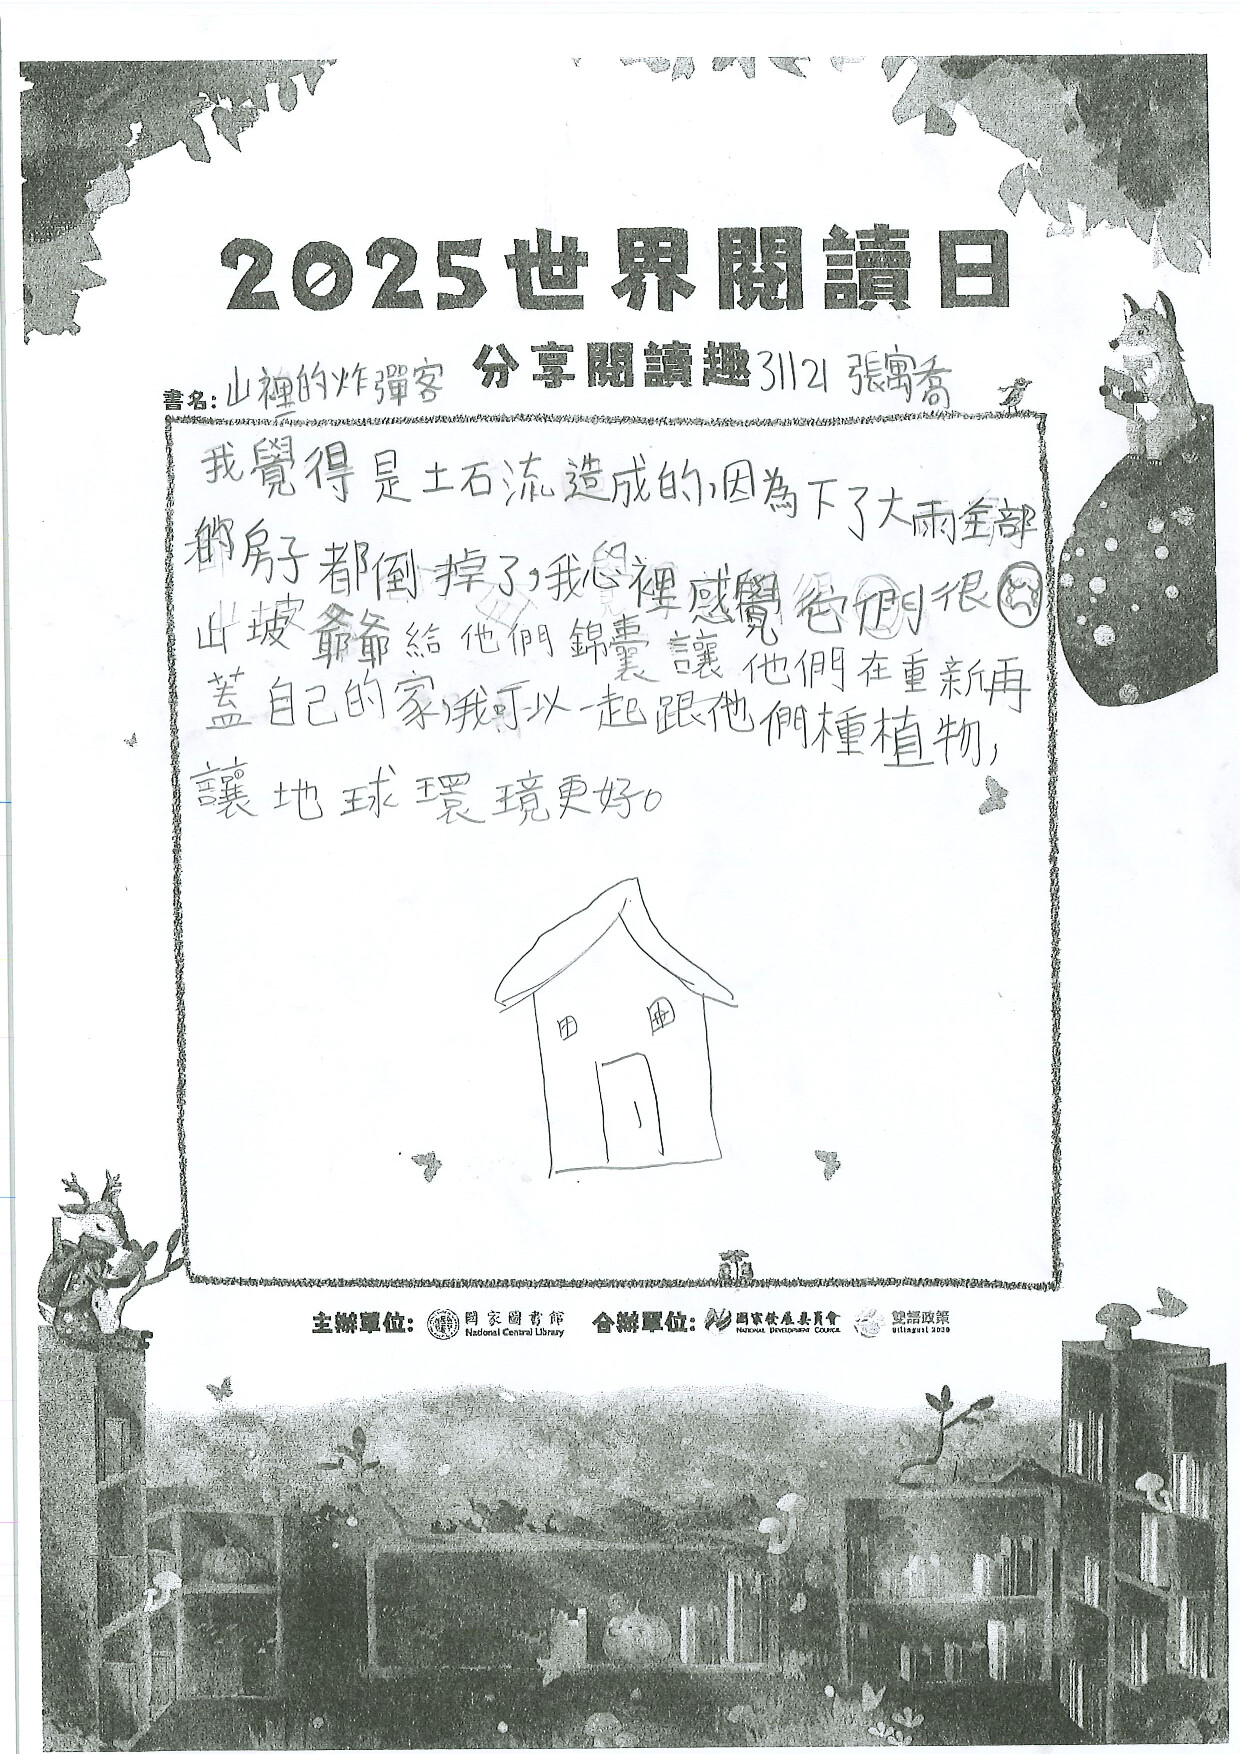 2025世界閱讀日
分享閱讀趣
31121 張寓喬
書名:山裡的炸彈客
我覺得是土石流造成的,因為下了大雨全部
的房子都倒掉了,我心裡感覺他們很
山坡爺爺給他們錦囊讓他們在重新再
蓋自己的家,我可以一起跟他們種植物,
讓地球環境更好。
主辦單位: 國家圖書館 合辦單位: 國家發展委員會 雙語政策
National Central Library NATIONAL DEVELOPMENT COUNCIL Bilingual 2030